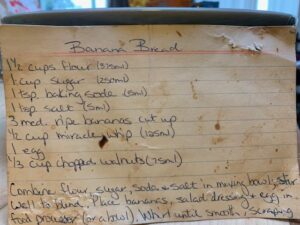 Banana Bread
1½ cups flour (375ml)
1 cup sugar (250ml)
1 tsp. baking soda (5ml)
1 tsp. salt (5ml)
3 med. ripe bananas cut up
½ cup miracle whip (125ml)
1 egg
⅓ cup chopped walnuts (75ml)
Combine flour, sugar, soda & salt in mixing bowl; stir
well to blend. Place bananas, salad dressing & egg in
food processor (or a bowl). Whirl until smooth, scraping